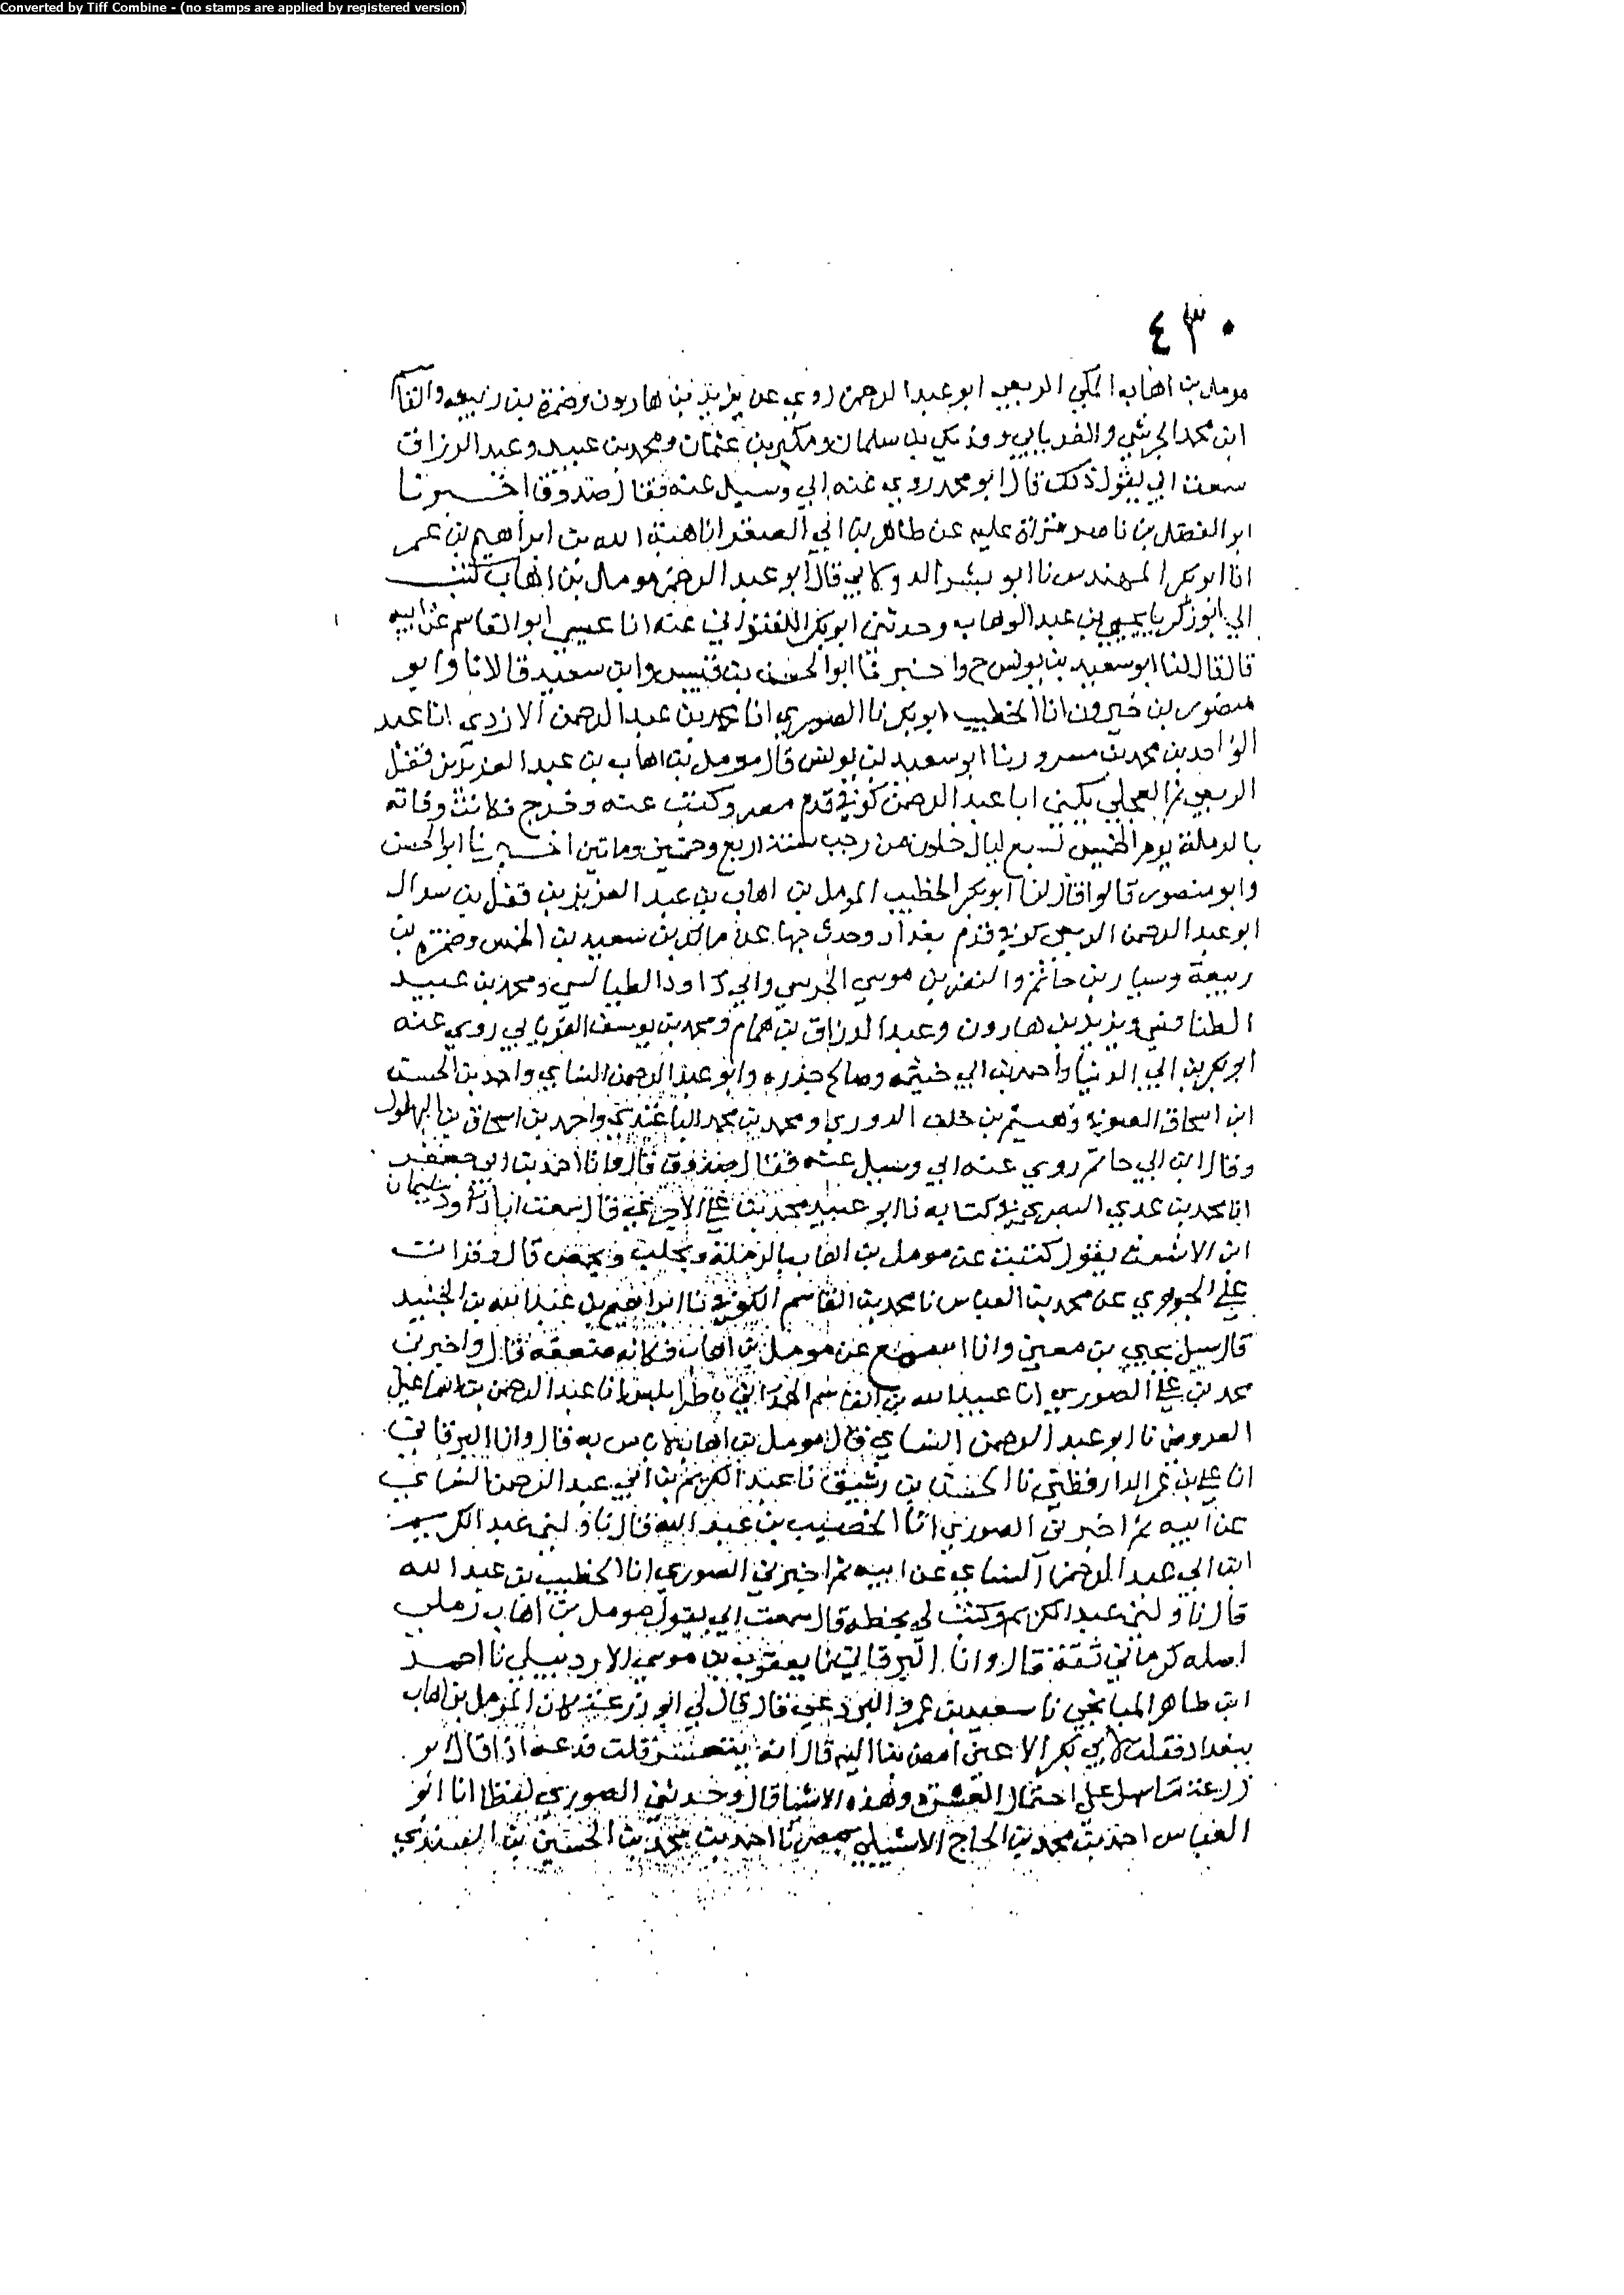 Converted by Tiff Combine - (no stamps are applied by registered version)
٤٣٠
مومل بن اهاب المكي الربعي ابو عبد الرحمن روي عن يزيد بن هارون وضمرة بن ربيعه والقاسم
ابن محمد الجرشي والفريابي وزيد بن سلمان ومكير بن عثمان ومحمد بن عبيد وعبد الرزاق
سمعت ابي يقول ذلك قال ابو محمد روي عنه ابي وسيل عنه فقال صدوق اخبرنا
ابو الفضل بن ناصر قراة عليه عن طاهر بن ابي الصقر انا هبة الله بن ابراهيم بن عمر
انا ابو بكر المهندس نا ابو بشر الدولابي قال ابو عبد الرحمن مومل بن اهاب كتب
الي ابو زكريا يحيى بن عبد الوهاب وحدثني ابو بكر اللفتواني عنه انا عمي ابو القاسم عن ابيه
قال قال لنا ابو سعيد بن يونس ح واخبرنا ابو الحسن بن قبيس وابن سعيد قالا نا وابو
منصور بن خيرون انا الخطيب ابو بكر نا الصوري انا محمد بن عبد الرحمن الازدي انا عبد
الواحد بن محمد بن مسرور نا ابو سعيد بن يونس قال مومل بن اهاب بن عبد العزيز بن قفل
الربعي ثم العجلي يكني ابا عبد الرحمن كوفي قدم مصر وكتب عنه وخرج فكانت وفاته
بالرملة يوم الخميس لسبع ليال خلون من رجب سنة اربع وخمسين وماتين اخبرنا ابو الحسن
وابو منصور قالوا قال لنا ابو بكر الخطيب المومل بن اهاب بن عبد العزيز بن قفل بن سدال
ابو عبد الرحمن الربعي كوفي قدم بغداد وحدث بها عن مالك بن سعيد بن الخمس وضمرة بن
ربيعة وسيار بن حاتم والنضر بن موسي الجرسي وابي داود الطيالسي ومحمد بن عبيد
الطنافسي ويزيد بن هارون وعبد الرزاق بن همام ومحمد بن يوسف الفريابي روي عنه
ابو بكر بن ابي الدنيا واحمد بن ابي خيثمه وصالح جزره وابو عبد الرحمن النساي واحمد بن الحسن
ابن اسحاق الصوفي وهيثم بن خلف الدوري ومحمد بن محمد الباغندي واحمد بن اسحاق بن البهلول
وقال ابن ابي حاتم روي عنه ابي وسيل عنه فقال صدوق قال وانا احمد بن ابي جعفر
انا محمد بن عدي البصري في كتابه نا ابو عبيد محمد بن علي الاجري قال سمعت ابا داود سليمان
ابن الاشعث يقول كتبت عن مومل بن اهاب بالرملة وبحلب وبحمص قال وقرات
علي الجوهري عن محمد بن العباس نا محمد بن القاسم الكوفي نا ابراهيم بن عبد الله بن الجنيد
قال سيل يحيي بن معين وانا اسمع عن مومل بن اهاب فكانه ضعفه قال واخبرني
محمد بن علي الصوري انا عبيد الله بن القاسم الهمداني باطرابلس انا عبد الرحمن بن اسماعيل
العروضي نا ابو عبد الرحمن النساي قال مومل بن اهاب لا باس به قال وانا البرقاني
انا علي بن عمر الدارقطني نا الحسن بن رشيق نا عبد الكريم بن ابي عبد الرحمن النساي
عن ابيه ثم اخبرني الصوري انا الخصيب بن عبد الله قال ناولني عبد الكريم
ابن ابي عبد الرحمن النساي عن ابيه ثم اخبرني الصوري انا الخطيب بن عبد الله
قال ناولني عبد الكريم وكتب لي بخطه قال سمعت ابي يقول مومل بن اهاب رملي
اصله كرماني ثقة قال وانا البرقاني نا يعقوب بن موسي الاردبيلي نا احمد
ابن طاهر الميانجي نا سعيد بن عمرو البرذعي قال قال لي ابو زرعة كان المومل بن اهاب
ببغداد فقلت لابي بكر الاعين امض بنا اليه قال انه يتعسر قلت فدعه اذا قال ابو
زرعة ما سهل علي احتمال العسرة وهذه الاشيا قال وحدثني الصوري لفظا انا ابو
العباس احمد بن محمد بن الحاج الاشبيلي بمصر نا احمد بن محمد بن الحسين بن السندي